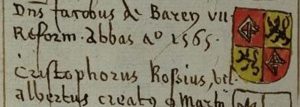 Dns Jacobus de Baren vii
Reform. abbas aº 1565.
Cristophorus Rossius, vil
albertus creatꝰ